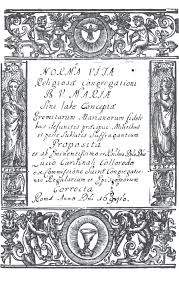 NORMA VITÆ
Religiosæ Congregationis
B. V. MARIÆ
Sine labe Conceptæ
Eremitarum Marianorum fideli
bus defunctis præcipue Militibus
et peste sublatis Suffragantium
Proposita
et ab Eminentissimo et
Cardinali Colloredo
ex Commissione Sanctæ Congregatio
nis Regularium et Episcoporum
Correcta
Romæ Anno Dni